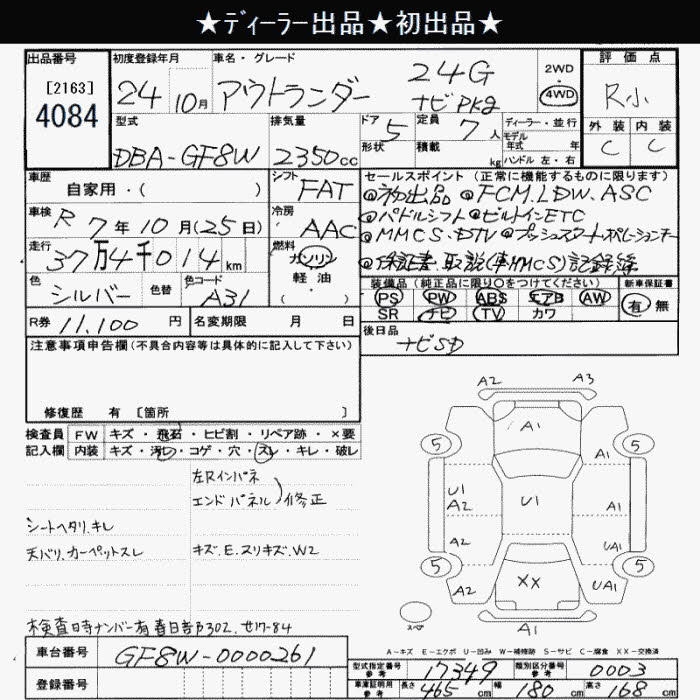 ★ディーラー出品★初出品★
出品番号
[2163]
4084
初度登録年月
24年 10月
車名・グレード
アウトランダー
24G
ナビPKg
2WD
4WD
評価点
R小
外装 内装
C C
型式
DBA-GF8W
排気量
2350cc
ドア 5
形状
定員 7人
積載 kg
ディーラー・並行
モデル
年式 年
ハンドル 左・右
車歴
自家用・( )
シフト
FAT
セールスポイント (正常に機能するものに限ります)
@初出品 @FCM.LDW.ASC
@パドルシフト @ビルトインETC
@MMCS.DTV @プッシュスタートオペレーションキー
@保証書.取説(車MMCS)記録簿
車検 R 7年10月(25日)
冷房
AAC
走行 37万4千014km
燃料
ガソリン
軽油
( )
色 シルバー 色替 色コード A31
装備品 (純正品に限り○をつけてください)
PS PW ABS エアB AW
SR ナビ TV カワ
新車保証書
有 無
R券 11,100円 名変期限 月 日
後日品
ナビSD
注意事項申告欄 (不具合内容等は具体的に記入して下さい)
修復歴 有 [箇所 ]
検査員 FW キズ・飛石・ヒビ割・リペア跡・×要
記入欄 内装 キズ・汚レ・コゲ・穴・スレ・キレ・破レ
左Rインパネ
エンドパネル 修正
シートヘタリ.キレ
天バリ.カーペットスレ
キズ.E.スリキズ.W2
検査日時ナンバー有 春日部302.せ17-84
A2 A3
A1
5 5
A1
U1
A2
U1
A1
A2
UA1
5 5
XX
A2
UA1
A1
スペア
A-キズ E-エクボ U-凹み W-補修跡 S-サビ C-腐食 XX-交換済
車台番号 GF8W-0000261
登録番号
型式指定番号
参考
17349
類別区分番号
参考
0003
車庫証明用
参考
長さ 465cm 幅 180cm 高さ 168cm